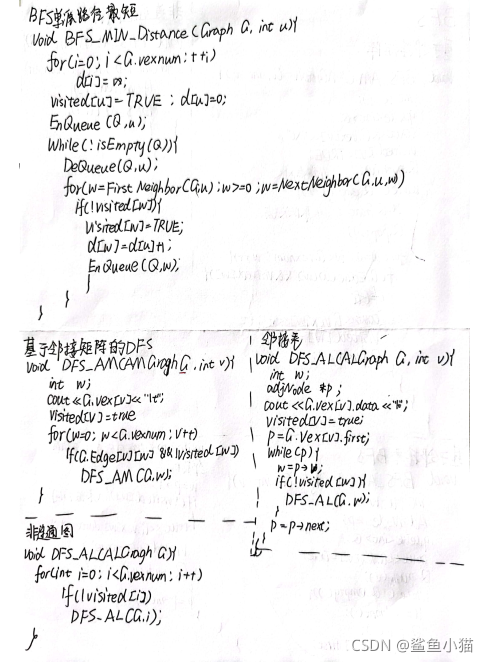 BFS单源路径最短
void BFS_MIN_Distance(Graph G, int u){
for(i=0; i<G.vexnum; ++i)
d[i]=∞;
visited[u]=TRUE; d[u]=0;
EnQueue(Q,u);
While(!isEmpty(Q)){
DeQueue(Q,u);
for(w=FirstNeighbor(G,u);w>=0;w=NextNeighbor(G,u,w))
if(!visited[w]){
visited[w]=TRUE;
d[w]=d[u]+1;
EnQueue(Q,w);
}
}
}
基于邻接矩阵的DFS
void DFS_AM(AMGragh G, int v){
int w;
cout<<G.vex[v]<<"\t";
visited[v]=true
for(w=0; w<G.vexnum; v++)
if(G.Edge[v][w] && !visited[w])
DFS_AM(G,w);
}
邻接表
void DFS_AL(ALGraph G, int v){
int w;
adjNode *p;
cout<<G.vex[v].data<<
visited[v]=true;
p=G.vex[v].first;
while(p){
w=p→
if(!visited[w]){
DFS_AL(G,w);
}
p=p→next;
}
}
非连通图
void DFS_AL(ALGragh G){
for(int i=0; i<G.vexnum; i++)
if(!visited[i])
DFS_AL(G,i);
}
CSDN @鲨鱼小猫